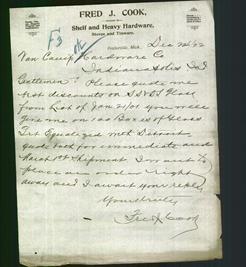 FRED J. COOK,
Shelf and Heavy Hardware,
Stoves and Tinware.
Fowlerville, Mich., Dec
Van Camp Hardware Co
Indianapolis Ind
Gentlemen: Please quote me
best discounts on
from List of Jan 21/01 you
give me on 100 Boxes of Glass
Frt Equalized with Detroit
quote both for immediate and
March 1st Shipment I want to
place an order right
away and I await your reply
Yours truly
Fred J Cook